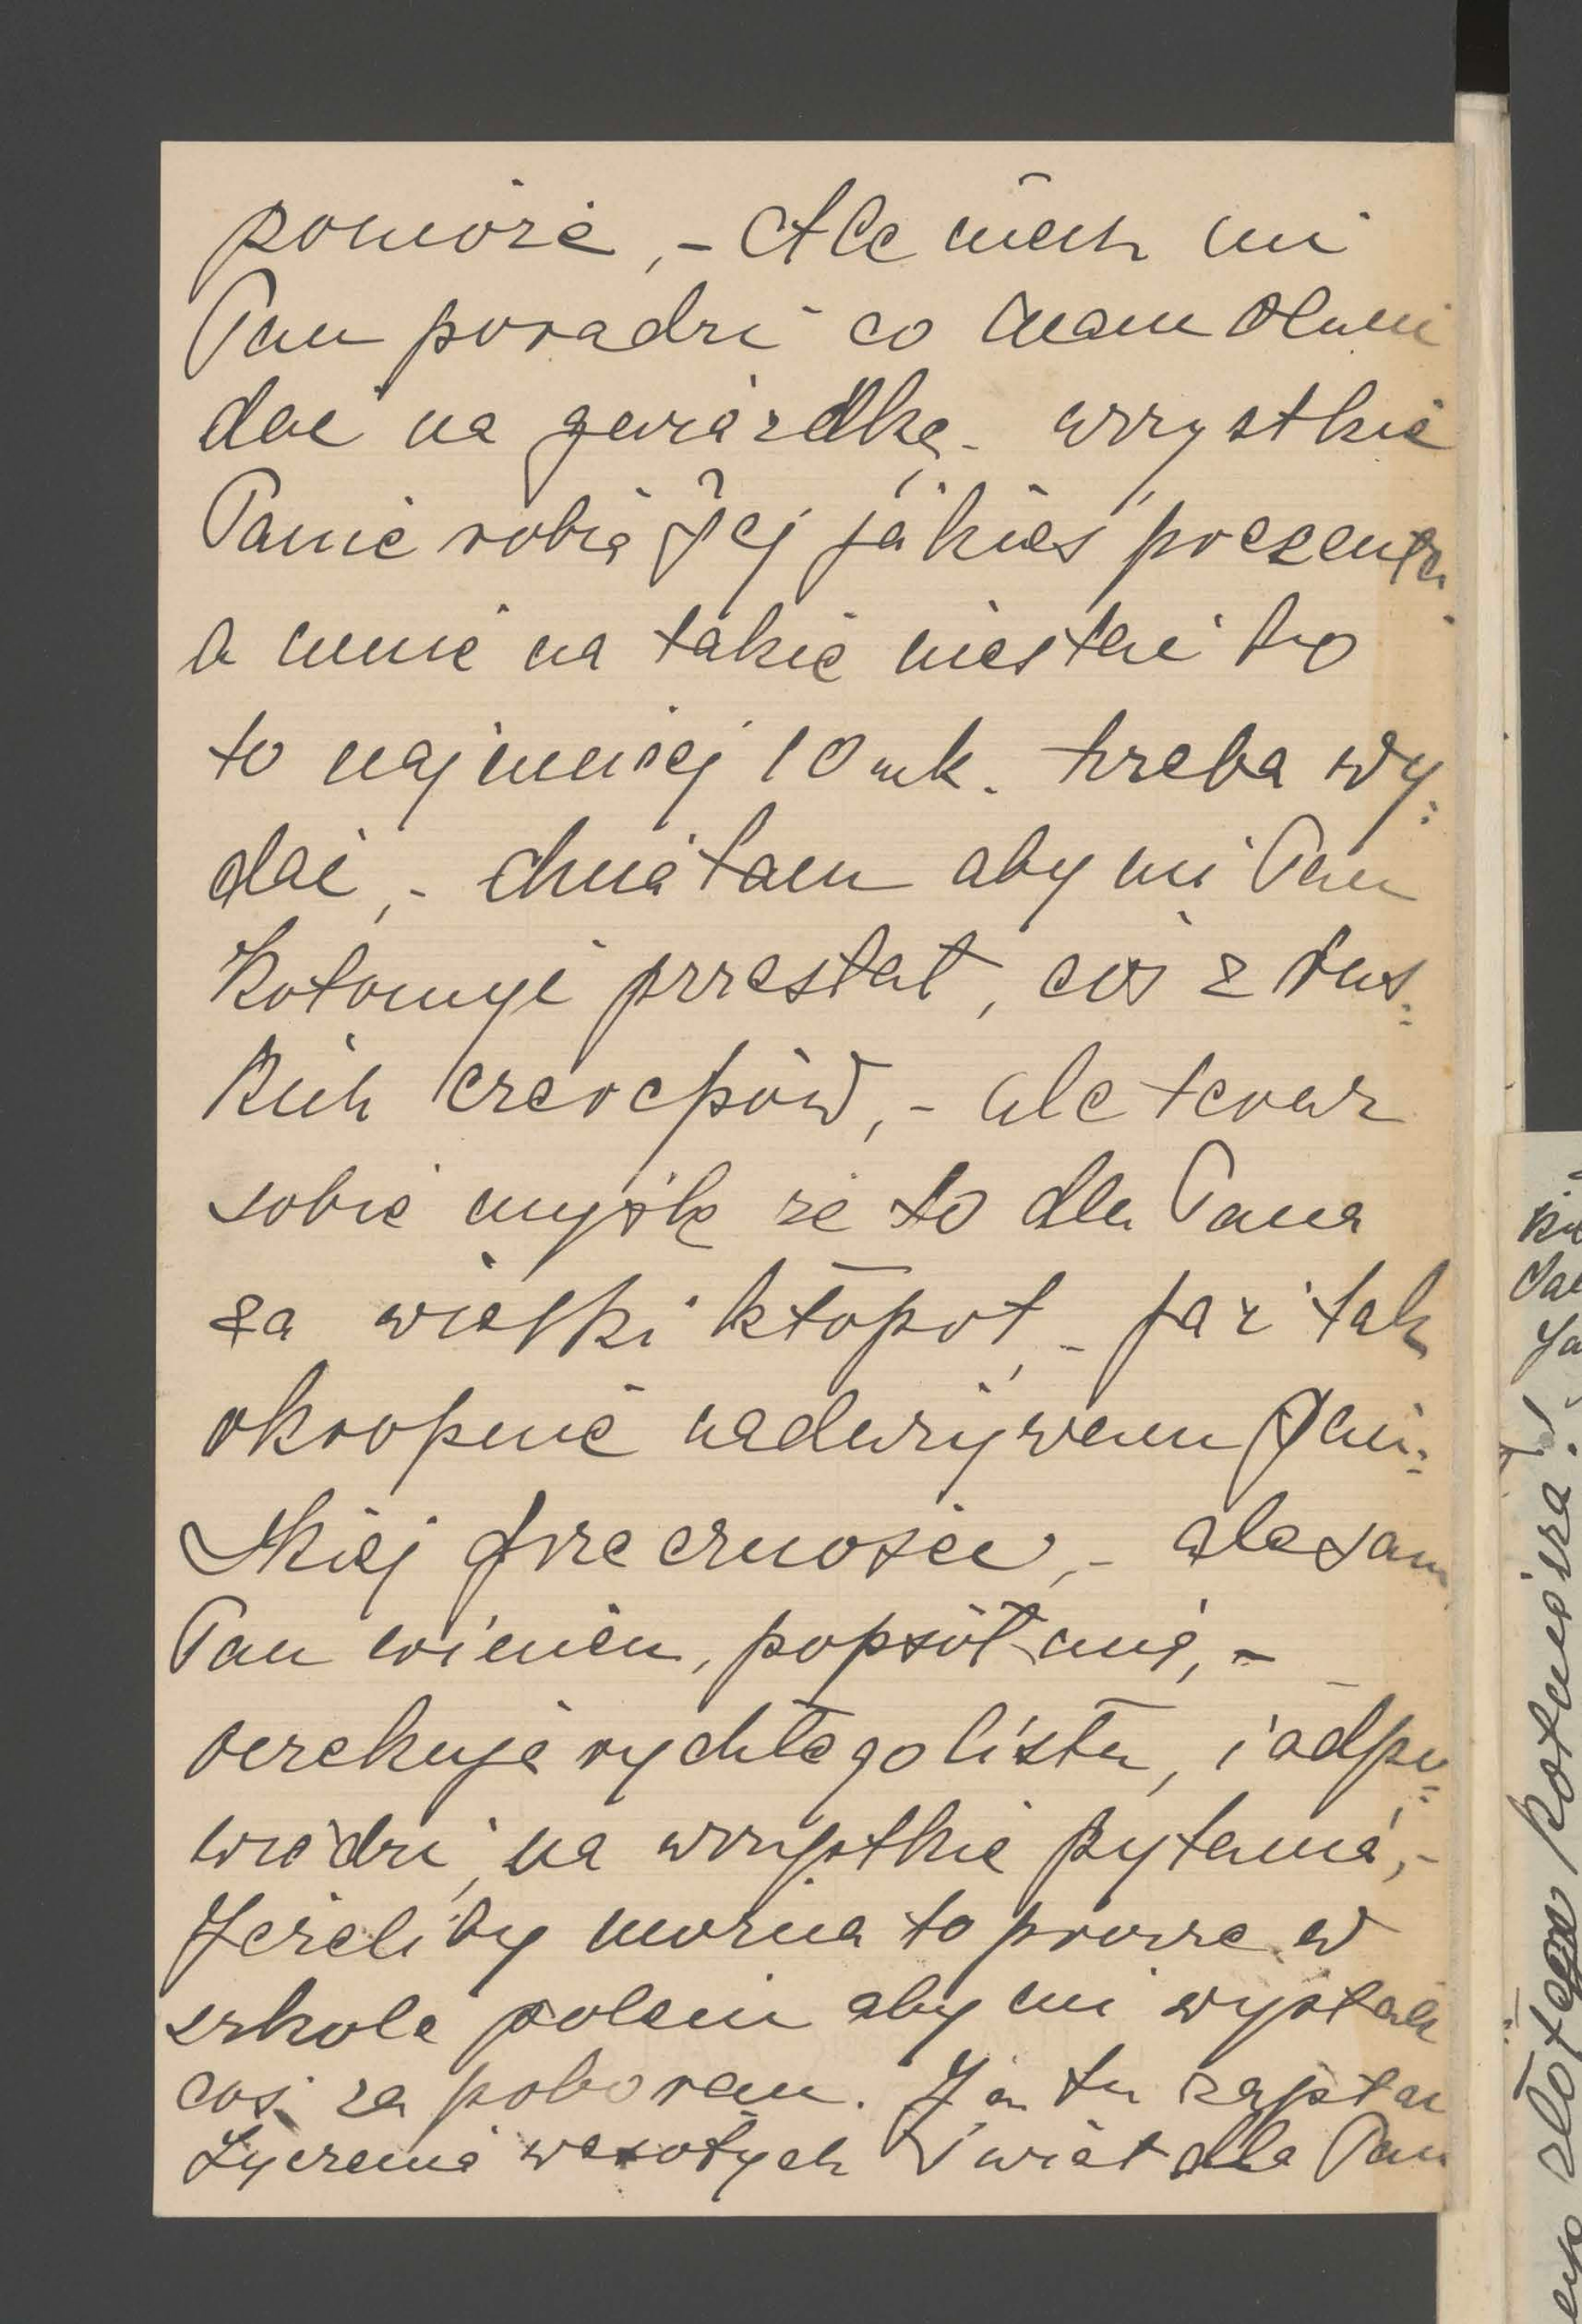 pomoże, - Ale niech mi
Pan poradzi co mam Oluni
dać na gwiazdkę - wszystkie
Panie robią Jej jakieś prezenta
a mnie na takie nie stać bo
to najmniej 10 mk. trzeba wy=
dać, - chciałam aby mi Pan
Kołomyi przesłał, coś z rus=
kich czerepów, - ale teraz
sobie myślę że to dla Pana
za wielki kłopot, - ja i tak
okropnie nadużywam Pań=
skiej grzeczności, - ale sam
Pan winien, popsół mię, -
oczekuję rychłego listu, i odpo=
wiedzi, na wszystkie pytania, -
Jeżeli by można to proszę w
szkole polecić aby mi wysłali
coś za poborem. Ja tu
życzenia wesołych Świąt dla Pan